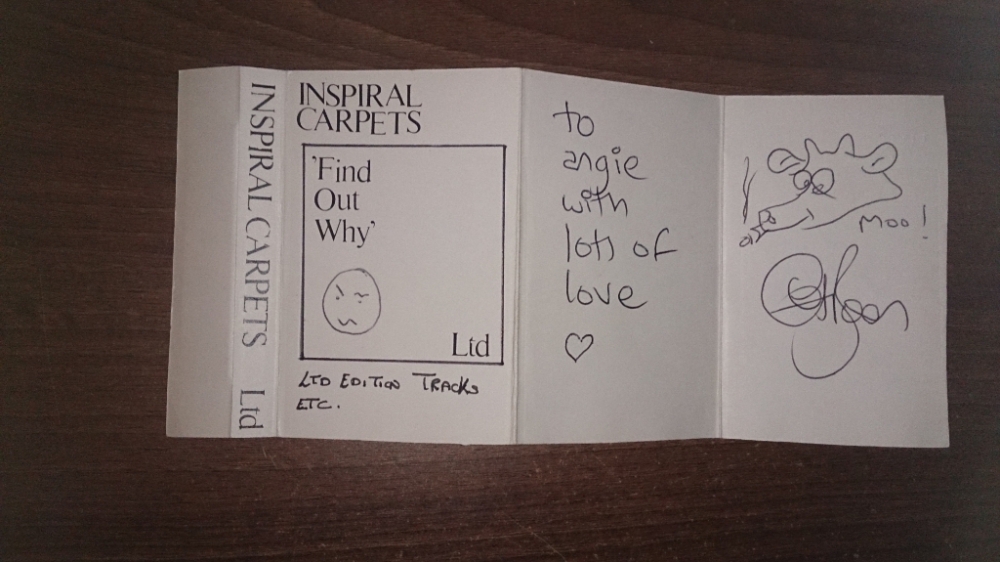 INSPIRAL CARPETS Ltd
INSPIRAL
CARPETS
'Find
Out
Why'
Ltd
LTD EDITION TRACKS
ETC.
to
angie
with
lots of
love
Moo!